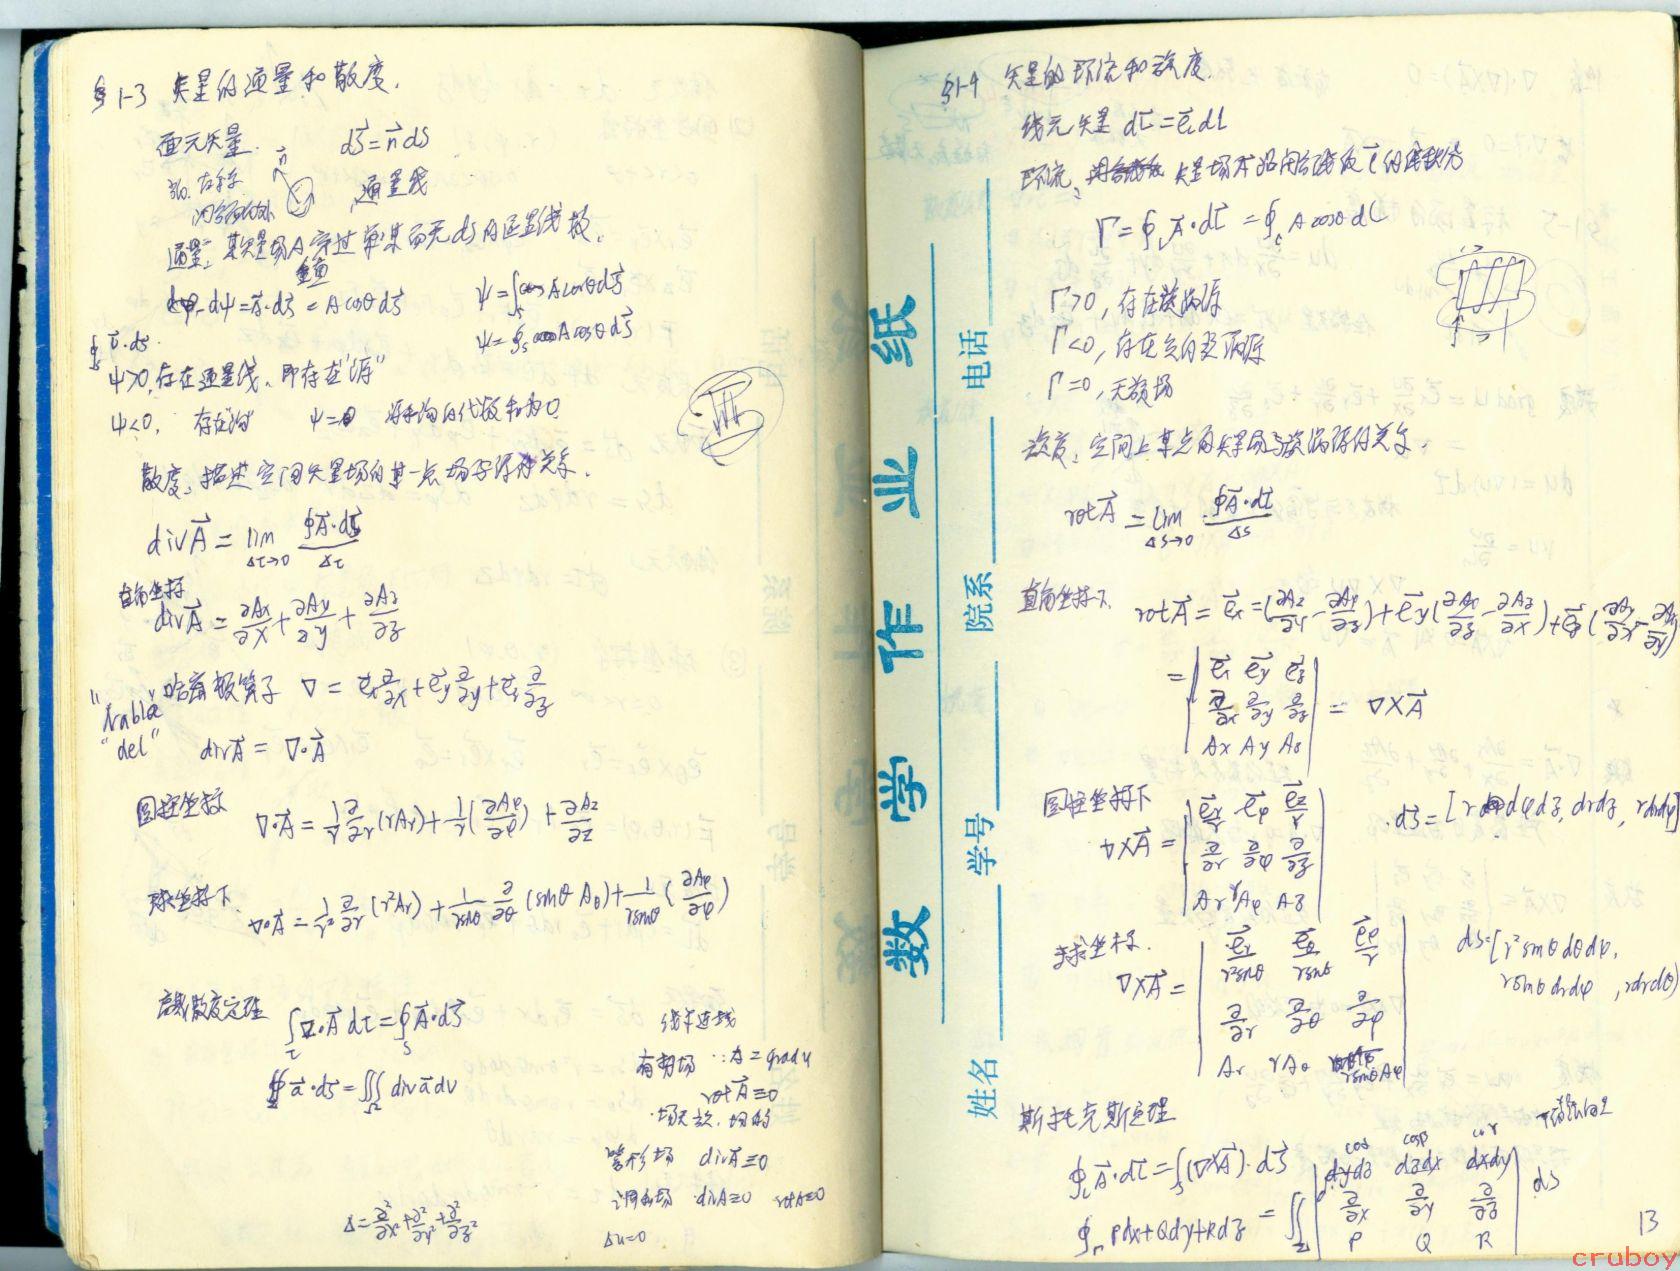 §1-3 矢量的通量和散度.
面元矢量. dS⃗ = n⃗ dS
n⃗
通量线
通量: 某矢量场A 穿过 某面元 dS 的通量线数.
dψ = A⃗·dS⃗ = A cosθ dS⃗
ψ = ∫s A cosθ dS⃗
ψ = ∮s A cosθ dS⃗
ψ>0, 存在通量线, 即存在"源"
ψ<0, 存在沟 ψ=0 源和沟的代数和为0
散度: 描述空间矢量场的某一点场与源的关系.
divA⃗ = lim Δτ→0 ∮A⃗·dS⃗ / Δτ
直角坐标
divA⃗ = ∂Ax/∂x + ∂Ay/∂y + ∂Az/∂z
哈密顿算子 ∇ = e⃗x ∂/∂x + e⃗y ∂/∂y + e⃗z ∂/∂z
"nabla"
"del"
divA⃗ = ∇·A⃗
圆柱坐标
∇·A⃗ = 1/r ∂/∂r (rAr) + 1/r (∂Aφ/∂φ) + ∂Az/∂z
球坐标下
∇·A⃗ = 1/r² ∂/∂r (r²Ar) + 1/rsinθ ∂/∂θ (sinθ Aθ) + 1/rsinθ (∂Aφ/∂φ)
散度定理
∫τ ∇·A⃗ dτ = ∮s A⃗·dS⃗
∯ a⃗·dS⃗ = ∭Ω div a⃗ dv
有势场 ∵A⃗ = grad u
rotA⃗ ≡ 0
管形场 divA⃗ ≡ 0
调和场 divA≡0 rotA≡0
Δu=0
Δ = ∂²/∂x² + ∂²/∂y² + ∂²/∂z²
§1-4 矢量的环流和旋度.
线元矢量 dl⃗ = e⃗l dl
环流: 矢量场A⃗沿闭合线 l⃗ 的线积分
Γ = ∮l A⃗·dl⃗ = ∮c A cosθ dl
Γ>0, 存在旋涡源
Γ<0, 存在负的旋涡源
Γ=0, 无旋场
旋度: 空间上某点的矢量场与旋涡源的关系.
rotA⃗ = lim Δs→0 ∮A⃗·dl⃗ / Δs
直角坐标下. rotA⃗ = e⃗x = (∂Az/∂y - ∂Ay/∂z) + e⃗y (∂Ax/∂z - ∂Az/∂x) + e⃗z (∂Ay/∂x - ∂Ax/∂y)
= | e⃗x e⃗y e⃗z |
| ∂/∂x ∂/∂y ∂/∂z | = ∇×A⃗
| Ax Ay Az |
圆柱坐标下
∇×A⃗ = | e⃗r/r e⃗φ e⃗z/r |
| ∂/∂r ∂/∂φ ∂/∂z |
| Ar rAφ Az |
dS⃗ = [r dφdz, drdz, rdrdφ]
球坐标.
∇×A⃗ = | e⃗r/r²sinθ e⃗θ/rsinθ e⃗φ/r |
| ∂/∂r ∂/∂θ ∂/∂φ |
| Ar rAθ rsinθAφ |
dS = [r²sinθ dθdφ,
rsinθ drdφ, rdrdθ]
斯托克斯定理
∮l A⃗·dl⃗ = ∫s (∇×A⃗)·dS⃗
∮Γ Pdx+Qdy+Rdz = ∬Σ | dydz dzdx dxdy |
| ∂/∂x ∂/∂y ∂/∂z |
| P Q R |
cosα cosβ cosγ
dS
13
数学作业纸
姓名
学号
院系
电话
cruboy